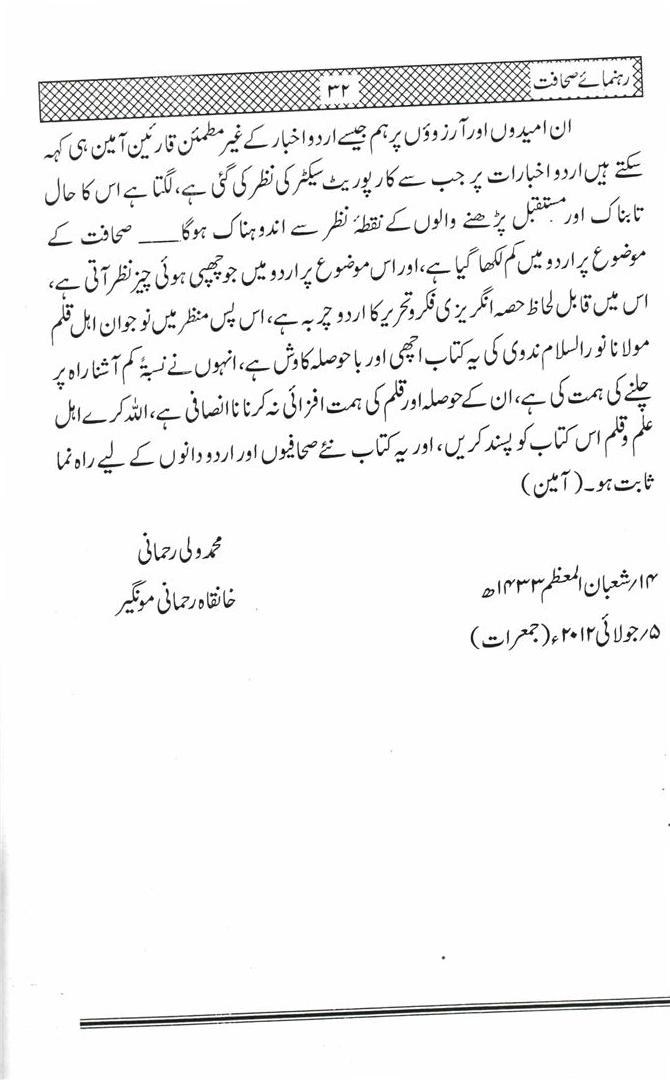 رہنمائے صحافت
۳۲
ان امیدوں اور آرزوؤں پر ہم جیسے اردو اخبار کے غیر مطمئن قارئین آمین ہی کہہ
سکتے ہیں اردو اخبارات پر جب سے کارپوریٹ سیکٹر کی نظر کی گئی ہے، لگتا ہے اس کا حال
تابناک اور مستقبل پڑھنے والوں کے نقطۂ نظر سے اندوہناک ہوگا___ صحافت کے
موضوع پر اردو میں کم لکھا گیا ہے، اور اس موضوع پر اردو میں جو چھپی ہوئی چیز نظر آتی ہے،
اس میں قابل لحاظ حصہ انگریزی فکر و تحریر کا اردو چربہ ہے، اس پس منظر میں نوجوان اہل قلم
مولانا نور السلام ندوی کی یہ کتاب اچھی اور باحوصلہ کاوش ہے، انہوں نے نسبۃً کم آشنا راہ پر
چلنے کی ہمت کی ہے، ان کے حوصلہ اور قلم کی ہمت افزائی نہ کرنا ناانصافی ہے، اللہ کرے اہل
علم و قلم اس کتاب کو پسند کریں، اور یہ کتاب نئے صحافیوں اور اردو دانوں کے لیے راہ نما
ثابت ہو۔ (آمین)
محمد ولی رحمانی
خانقاہ رحمانی مونگیر
۱۴/شعبان المعظم ۱۴۳۳ھ
۵/جولائی ۲۰۱۲ء (جمعرات)